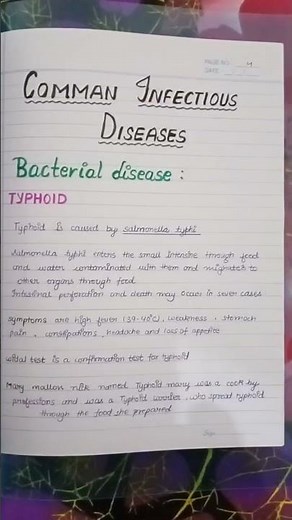 PAGE NO. 4
DATE
COMMAN INFECTIOUS
DISEASES
Bacterial disease :
TYPHOID
Typhoid is caused by salmonella typhi
Salmonella typhi enters the small intensive through food
and water contaminated with them and migrates to
other organs through food
Intestinal perforation and death may occur in sever cases
Symptoms are high fever (39-40°C), weakness, stomach
pain, constipations, headache and loss of appetite
widal test is a confirmation test for typhoid
Mary mallon nick named Typhoid mary was a cook by
professions and was a Typhoid , who spread typhoid
through the food she prepared